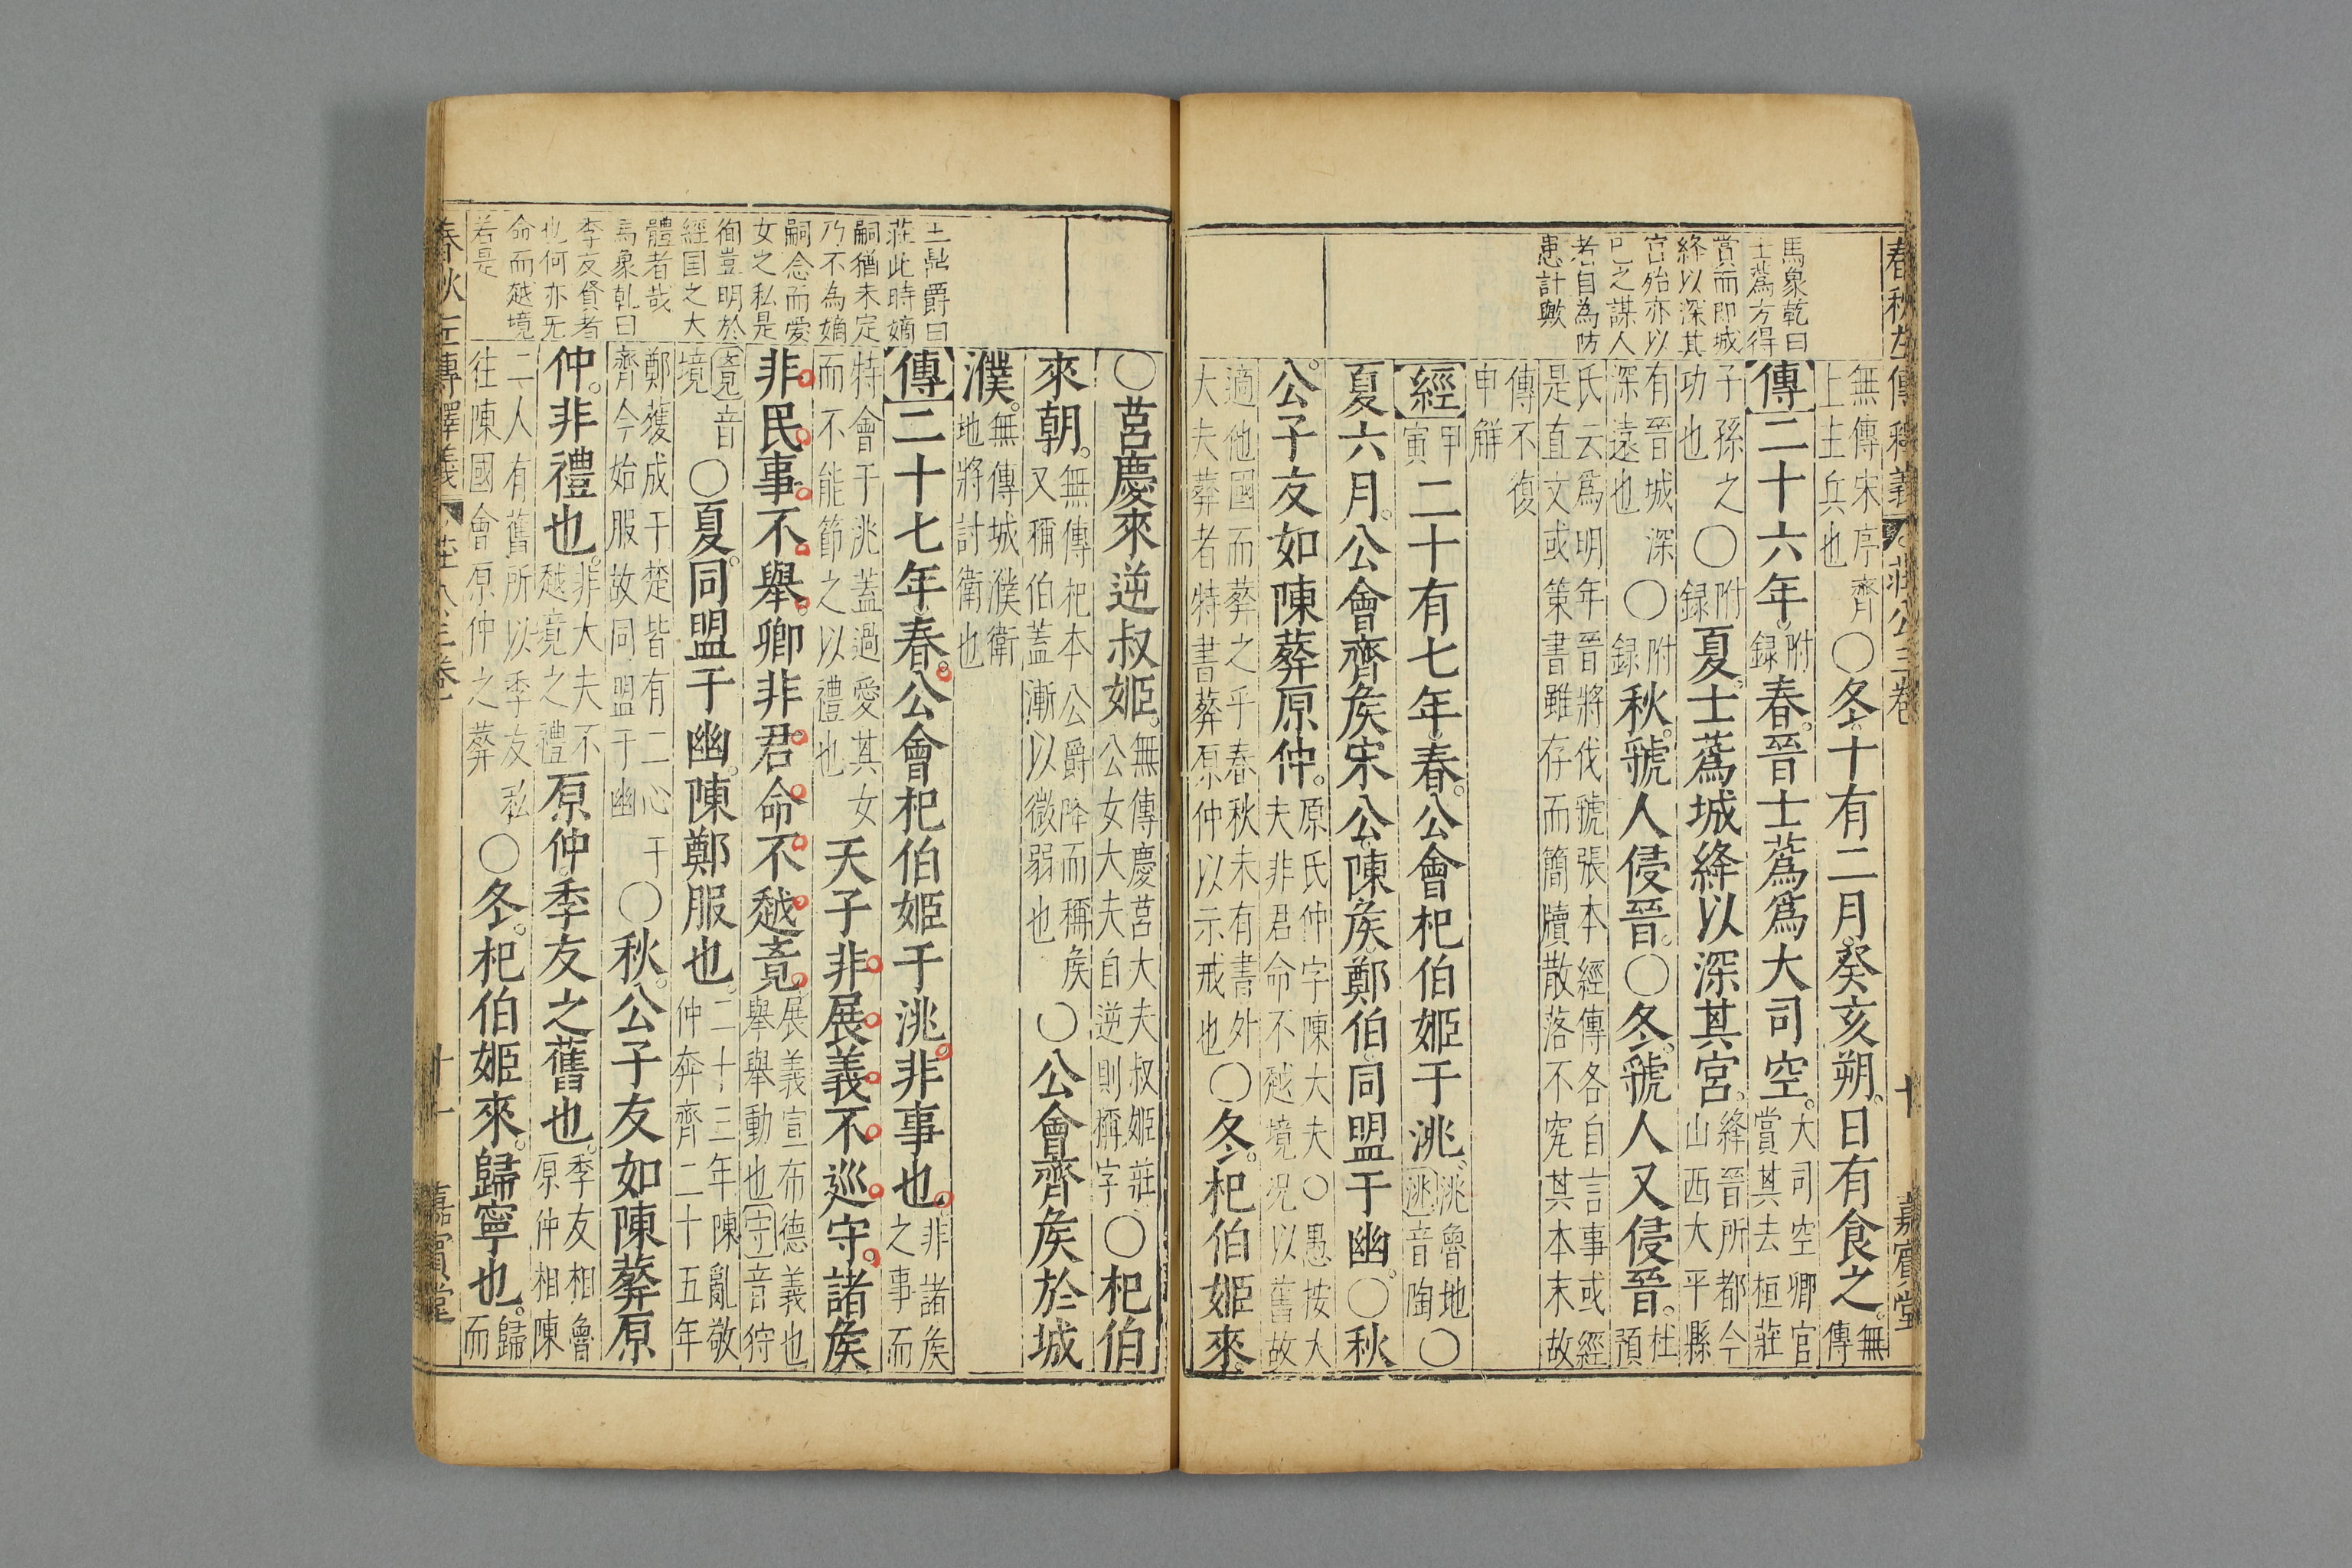 春秋左傳釋義 莊公三卷 十 嘉賓堂
馬象乾曰
士蔿方得
賞而即城
絳以深其
宮殆亦以
已之謀人
者自為防
患計歟
無傳宋序齊
上主兵也
○冬十有二月癸亥朔日有食之。無傳
傳二十六年。附録春。晉士蔿爲大司空。大司空卿官
賞其去桓莊
子孫之
功也
○附録夏。士蔿城絳以深其宮。絳晉所都今
山西大平縣
有晉城深
深遠也
○附録秋。虢人侵晉。○冬。虢人又侵晉。杜預
氏云爲明年晉將伐虢張本經傳各自言事或經
是直文或策書雖存而簡牘散落不究其本末故
傳不復
申解
經甲寅二十有七年春。公會杞伯姬于洮。洮魯地
洮音陶
○
夏六月。公會齊矦宋公陳矦鄭伯同盟于幽。○秋
公子友如陳葬原仲。原氏仲字陳大夫○愚按大
夫非君命不越境况以舊故
適他國而葬之乎春秋未有書外
大夫葬者特書葬原仲以示戒也
○冬。杞伯姬來。
○莒慶來逆叔姬。無傳慶莒大夫叔姬莊
公女大夫自逆則稱字
○杞伯
來朝。無傳杞本公爵降而稱矦
又稱伯蓋漸以微弱也
○公會齊矦於城
濮。無傳城濮衛
地將討衛也
王鼎爵曰
莊此時嫡
嗣猶未定
乃不為嫡
嗣念而愛
女之私是
徇豈明於
經国之大
體者哉
馬象乾曰
季友賢者
也何亦无
命而越境
若是
傳二十七年春。公會杞伯姬于洮非事也。非諸矦
之事而
特會于洮蓋過愛其女
而不能節之以禮也
天子非展義不巡守。諸矦
非民事不舉。卿非君命不越竟。展義宣布德義也
舉舉動也守音狩
竟音
境
○夏。同盟于幽。陳鄭服也。二十三年陳亂敬
仲奔齊二十五年
鄭獲成于楚皆有二心于
齊今始服故同盟于幽
○秋。公子友如陳葬原
仲。非禮也。非大夫不
越境之禮
原仲。季友之舊也。季友相魯
原仲相陳
二人有舊所以季友私
往陳國會原仲之葬
○冬。杞伯姬來。歸寧也。歸
而
春秋左傳釋義 莊公三卷 十一 嘉賓堂